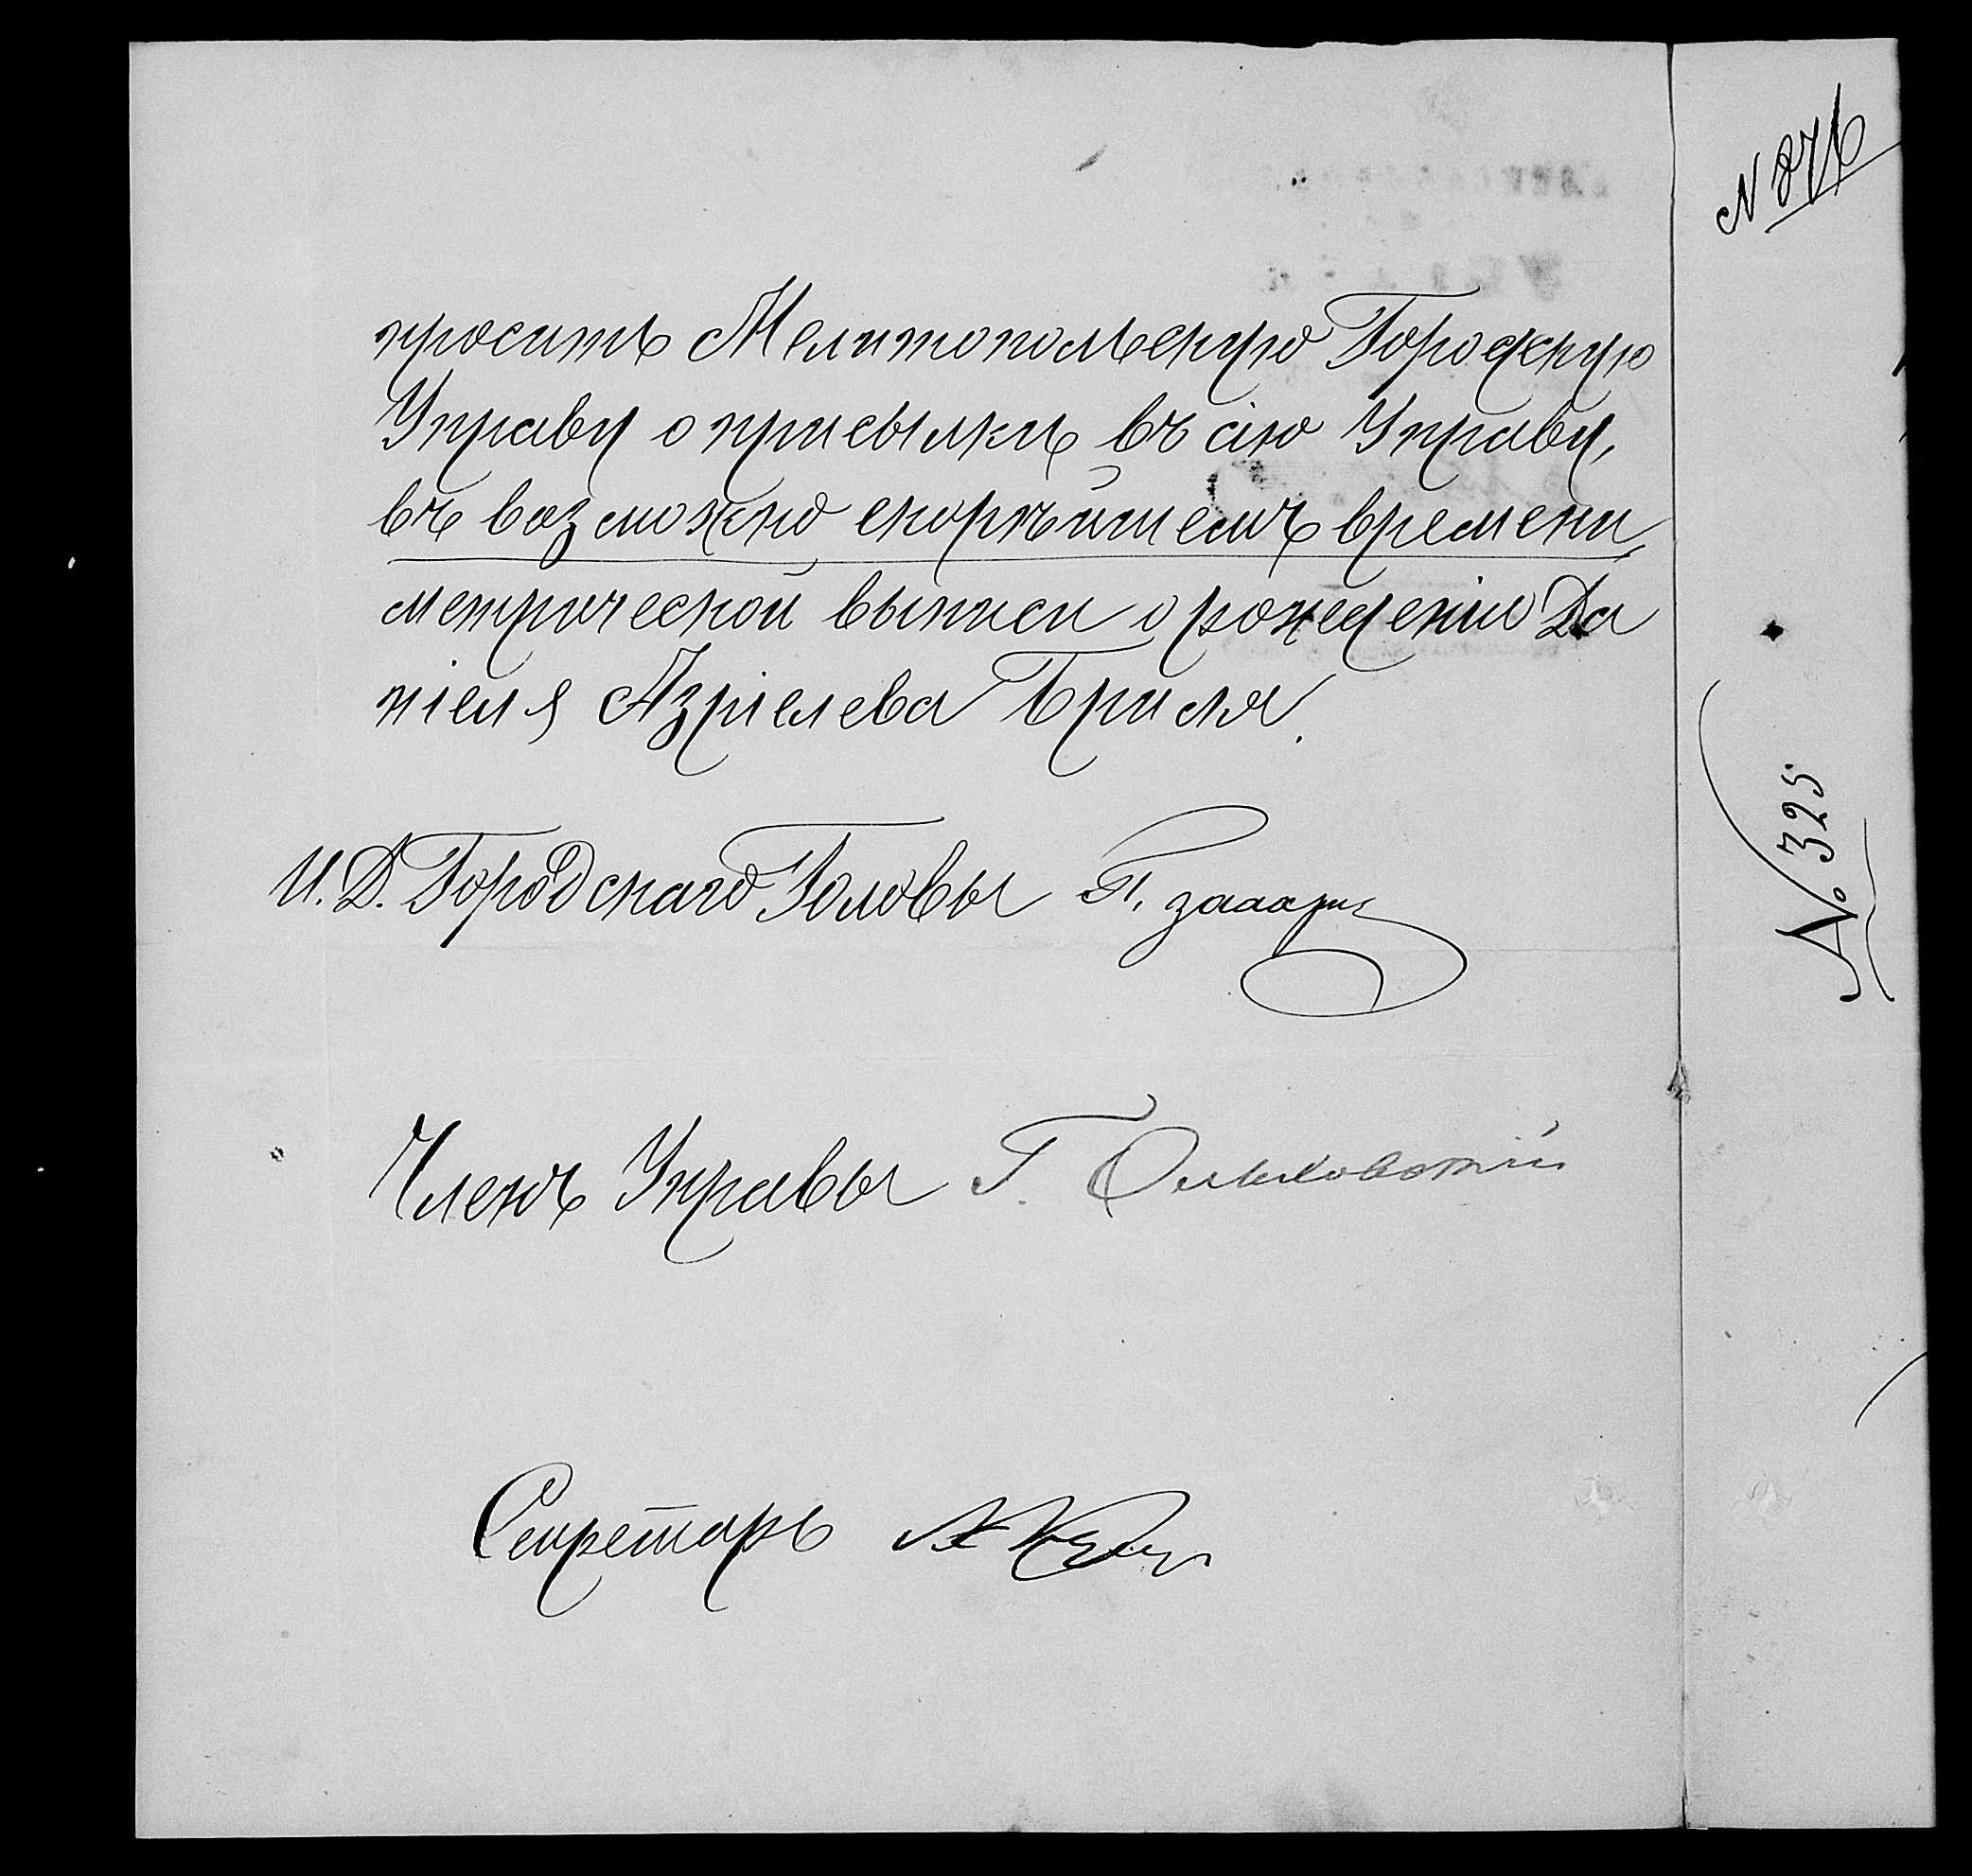 N 276
проситъ Мелитопольскую Городскую
Управу о присылкѣ въ сію Управу,
въ возможно скорѣйшемъ времени,
метрической выписи о рожденіи Да
ніеля Азріелева Бриля.
И. Д. Городскаго Головы П.
№ 325
Членъ Управы Г.
Секретарь